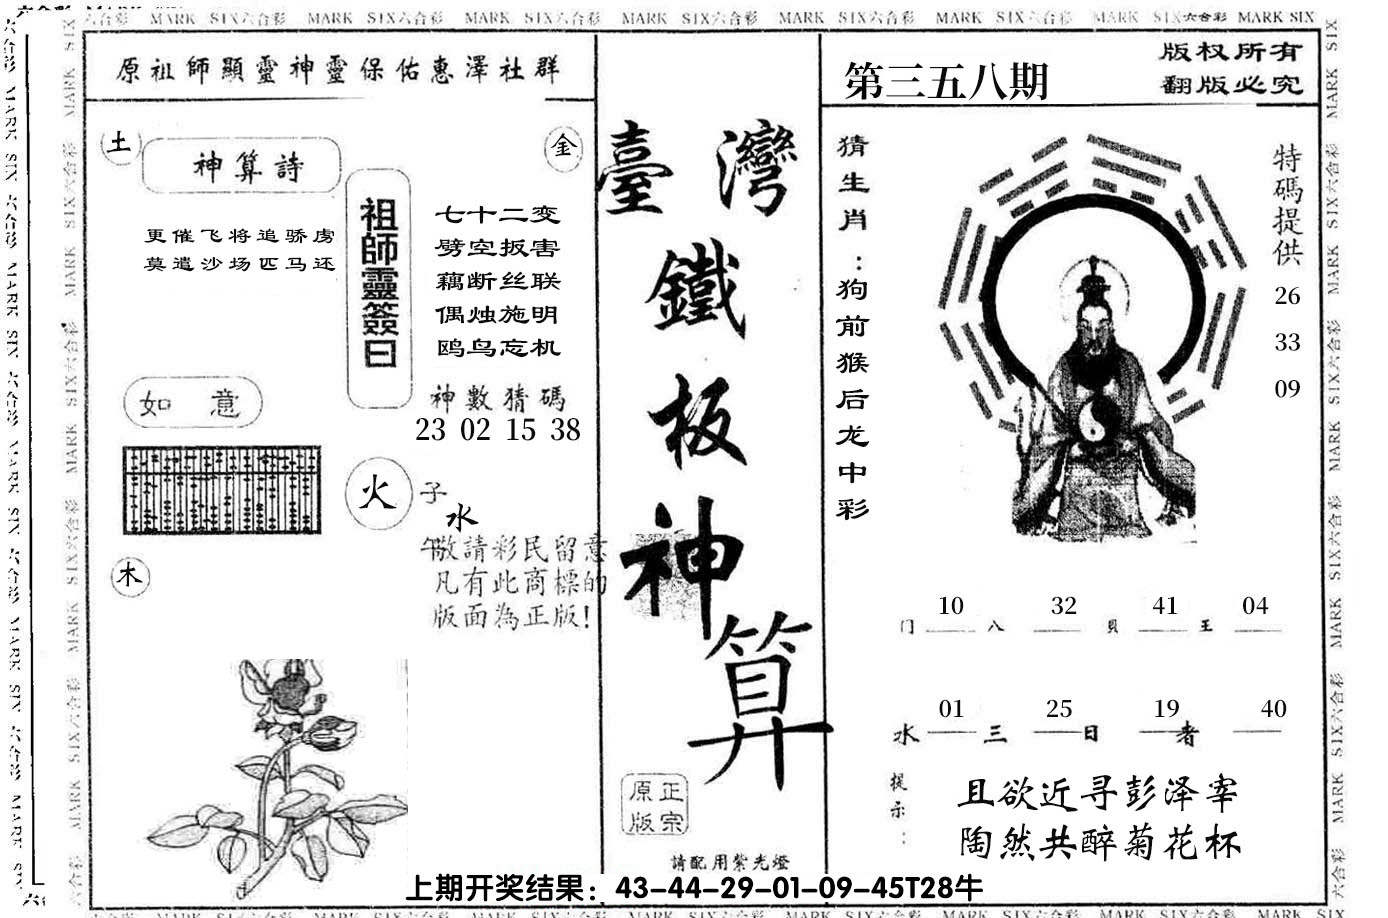 六合彩 MARK SIX六合彩 MARK SIX六合彩 MARK SIX六合彩 MARK SIX六合彩 MARK SIX六合彩 MARK SIX六合彩 MARK SIX六合彩 MARK SIX
原祖師顯靈神靈保佑惠澤社群
土
神算詩
金
更催飞将追骄虏
莫遣沙场匹马还
祖師靈簽曰
七十二变
劈空扳害
藕断丝联
偶烛施明
鸥鸟忘机
如意
神數猜碼
23 02 15 38
火
子
水
午
木
敬請彩民留意
凡有此商標的
版面為正版!
臺灣
鐵
板
神
算
正宗
原版
請配用紫光燈
第三五八期
版权所有
翻版必究
猜生肖:狗前猴后龙中彩
特碼提供
26
33
09
10 32 41 04
门 八 貝 王
01 25 19 40
水 三 日 者
提示:
且欲近寻彭泽宰
陶然共醉菊花杯
上期开奖结果：43-44-29-01-09-45T28牛